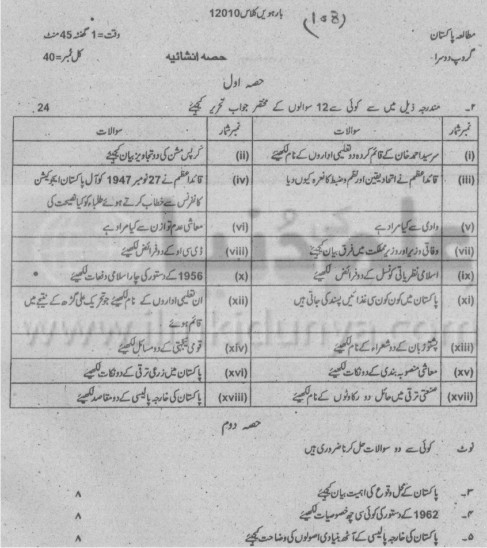 بارہویں کلاس 12010
(108)
مطالعہ پاکستان
وقت=1 گھنٹہ 45 منٹ
گروپ دوسرا
حصہ انشائیہ
کل نمبر=40
حصہ اول
۲۔ مندرجہ ذیل میں سے کوئی سے 12 سوالوں کے مختصر جواب تحریر کیجئے 24
نمبرشمار سوالات نمبرشمار سوالات
(i) سرسید احمد خان کے قائم کردہ دو تعلیمی اداروں کے نام لکھیئے (ii) کرپس مشن کی دو تجاویز بیان کیجیئے
(iii) قائداعظم نے اتحاد یقین اور نظم وضبط کا نعرہ کیوں دیا (iv) قائداعظم نے 27 نومبر 1947 کو آل پاکستان ایجوکیشن
کانفرنس سے خطاب کرتے ہوئے طلباء کو کیا نصیحت کی
(v) وادی سے کیا مراد ہے (vi) معاشی عدم توازن سے کیا مراد ہے
(vii) وفاقی وزیر اور وزیر مملکت میں فرق بیان کیجیئے (viii) ڈی سی او کے دو فرائض لکھیئے
(ix) اسلامی نظریاتی کونسل کے دو فرائض لکھیئے (x) 1956 کے دستور کی چار اسلامی دفعات لکھیئے
(xi) پاکستان میں کون کون سی غذائیں پسند کی جاتی ہیں (xii) ان تعلیمی اداروں کے نام لکھیئے جو تحریک علی گڑھ کے نتیجے میں
قائم ہوئے
(xiii) پشتو زبان کے دو شعراء کے نام لکھیئے (xiv) قومی یکجہتی کے دو مسائل لکھیئے
(xv) معاشی منصوبہ بندی کے دو نکات لکھیئے (xvi) پاکستان میں زرعی ترقی کے دو نکات لکھیئے
(xvii) صنعتی ترقی میں حائل دو رکاوٹوں کے نام لکھیئے (xviii) پاکستان کی خارجہ پالیسی کے دو مقاصد لکھیئے
حصہ دوم
نوٹ کوئی سے دو سوالات حل کرنا ضروری ہیں
۳۔ پاکستان کے محل وقوع کی اہمیت بیان کیجیئے ۸
۴۔ 1962 کے دستور کی کوئی سی چھ خصوصیات لکھیئے ۸
۵۔ پاکستان کی خارجہ پالیسی کے آٹھ بنیادی اصولوں کی وضاحت کیجیئے ۸